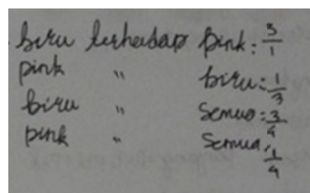 biru terhadap pink : 3/1
pink " biru : 1/3
biru " semua : 3/4
pink " semua : 1/4